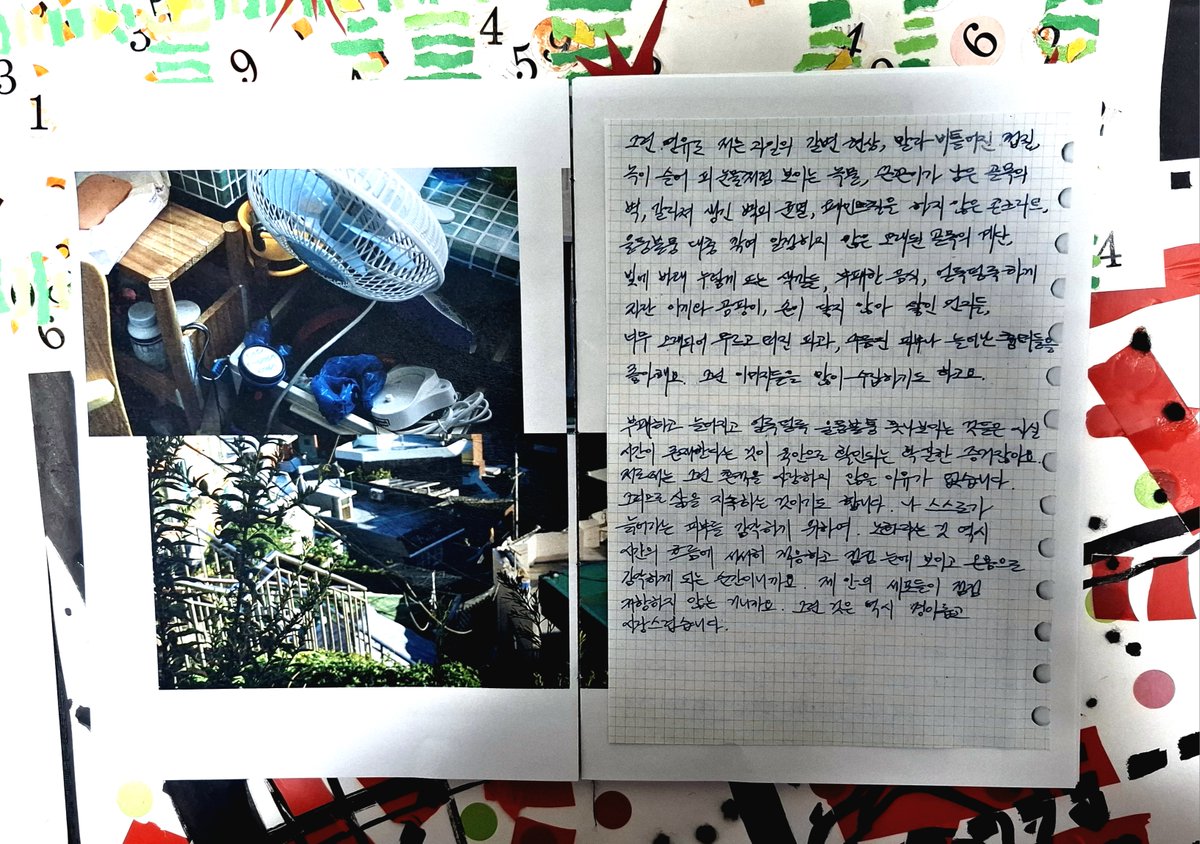 3
5
9
4
5
9
4
6
2
1
3
6
4
그런 연유로 저는 과일의 갈변 현상, 말라 비틀어진 껍질,
녹이 슬어 피 눈물처럼 보이는 녹물, 끈끈이가 남은 골목의
벽, 갈라져 생긴 벽의 균열, 페인트칠을 하지 않은 콘크리트,
울퉁불퉁 대충 깎여 일정하지 않은 오래된 골목의 계단,
빛에 바래 누렇게 뜨는 색깔들, 부패한 음식, 얼룩덜룩하게
자란 이끼와 곰팡이, 손이 닿지 않아 쌓인 먼지들,
너무 오래되어 무르고 터진 과과, 피부나 늘어난 들을
좋아해요. 그런 이미지들을 많이 수집하기도 하고요.
부패하고 늘어지고 얼룩덜룩 울퉁불퉁 못나보이는 것들은 사실
시간이 존재한다는 것이 육안으로 확인되는 확실한 증거잖아요.
저로써는 그런 흔적을 사랑하지 않은 이유가 없습니다.
그러므로 삶을 지속하는 것이기도 합니다. 나 스스로가
늙어가는 피부를 감각하기 위하여. 노화라는 것 역시
시간의 흐름에 서서히 적응하고 점점 눈에 보이고 온몸으로
감각하게 되는 순간이니까요. 제 안의 세포들이 점점
저항하지 않는 거니까요. 그런 것은 역시 경이롭고
사랑스럽습니다.